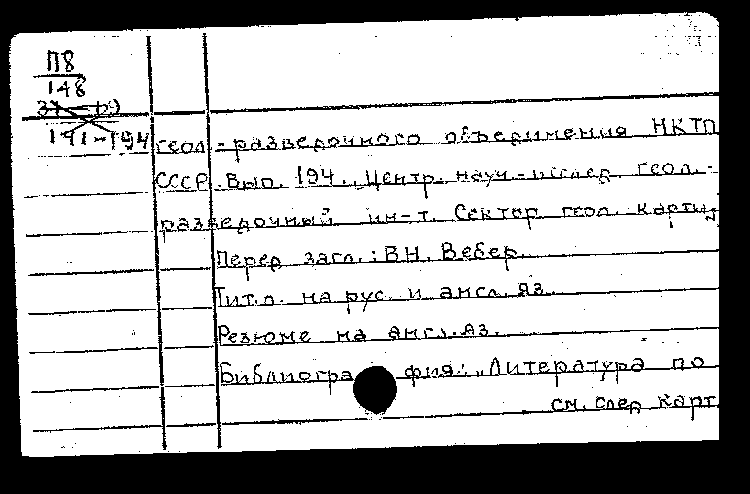 П8
148
191-194
геол.-разведочного объединения НКТП
СССР. Вып. 194. Центр. науч.-исслед. геол.-
разведочный ин-т. Сектор геол. карты.
Перед загл.: В.Н. Вебер.
Тит.л. на рус. и англ. яз.
Резюме на англ. яз.
Библиография: "Литература по
см. след. карт.